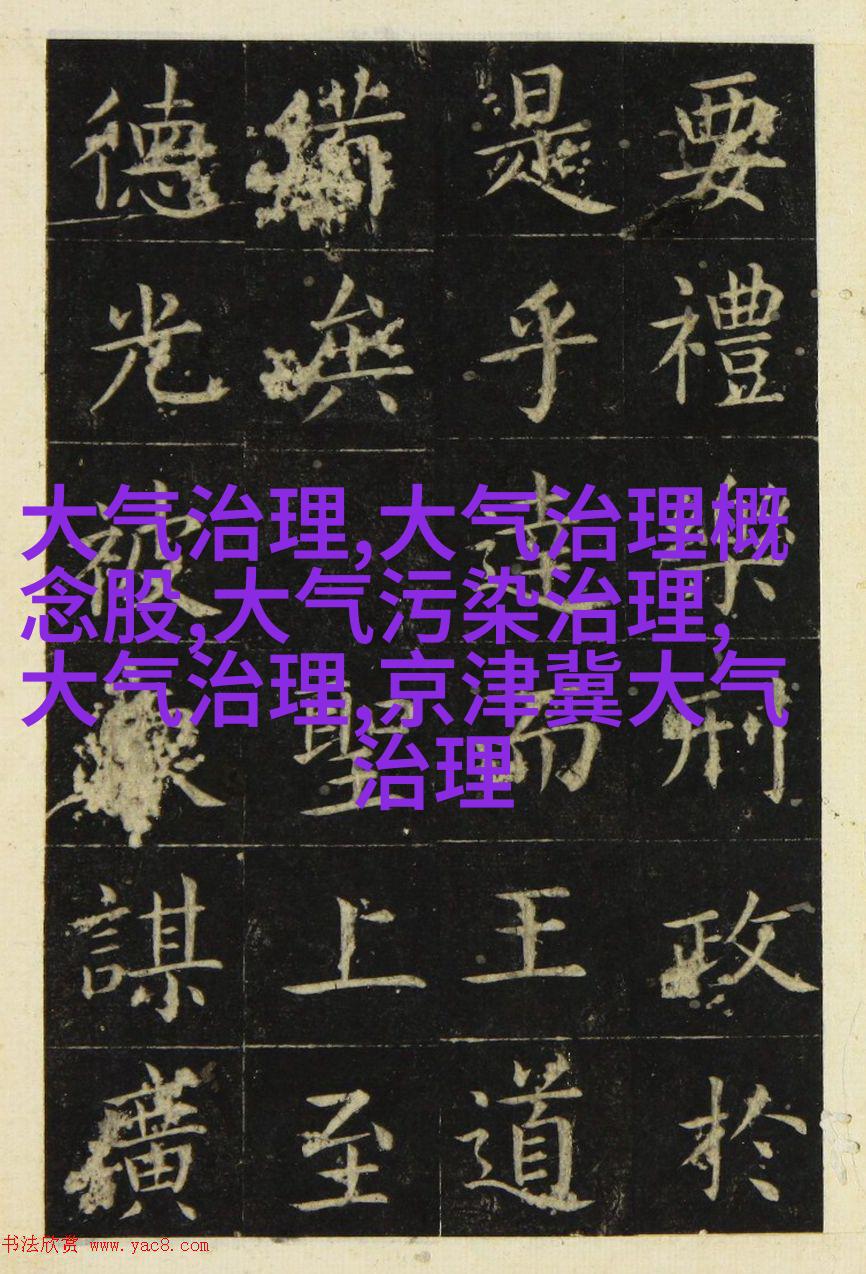 要禮樂刑政於
是乎達而王道
備聖上至
德光被謀廣
大气治理,大气治理概
念股,大气污染治理,
大气治理,京津冀大气
治理
书法欣赏 www.yac8.com